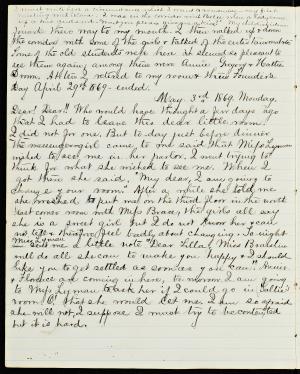 found their way to my mouth. I then walked up & down
the corridor with some of the girls & talked of the entertainment.
Some of the old students were here. It seemed so pleasant to
see them again; among them were Annie Gregory & Hattie
. At ten I retired to my room & thus Founders
Day April 29th 1869 ended.
May 3rd 1869. Monday.
Dear! Dear!! Who would have thought a few days ago
that I had to leave this dear little room!
I did not for one. But to-day just before dinner
the messenger girl came, to and said that Miss Lyman
wished to see me in her parlor, I went trying to
think for what she wished to see me. When I
got there she said, "My dear, I am going to
change your room". After a while she told me
she wished to put me on the third floor in the north
east corner room with Miss. The girls all say
she is a sweet girl but I do not know her & can
not tell & therefore feel badly about changing. To-night
Miss Lyman sent me a little note "Dear Lilla! Miss
will do all she can to make you happy & I should
like you to get settled as soon as you can."
& are coming in here, to-morrow I am going
to Miss Lyman to ask her if I could go in Callie's
room. O! that she would let me. I am so afraid
she will not, I suppose I must try to be contented
but it is hard.